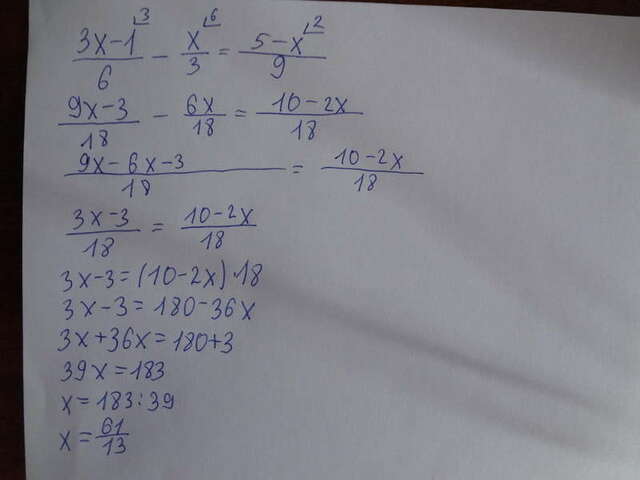 (3x-1)/6 ⌟3 - x/3 ⌟6 = (5-x)/9 ⌟2
(9x-3)/18 - 6x/18 = (10-2x)/18
(9x-6x-3)/18 = (10-2x)/18
(3x-3)/18 = (10-2x)/18
3x-3=(10-2x)·18
3x-3=180-36x
3x+36x=180+3
39x=183
x=183:39
x=61/13